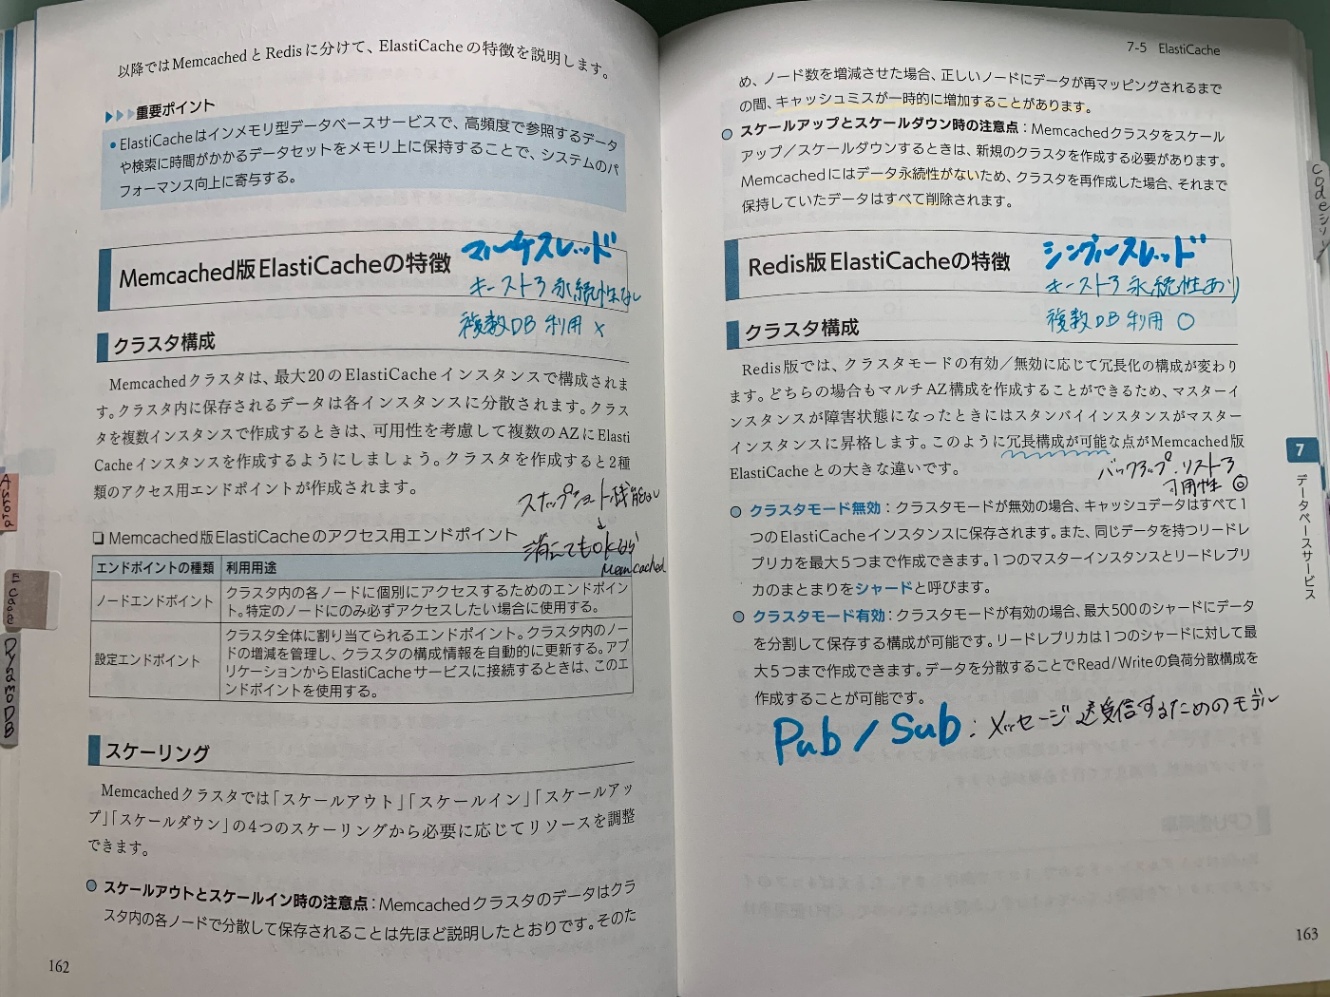 以降ではMemcachedとRedisに分けて、ElastiCacheの特徴を説明します。
重要ポイント
• ElastiCacheはインメモリ型データベースサービスで、高頻度で参照するデータ
や検索に時間がかかるデータセットをメモリ上に保持することで、システムのパ
フォーマンス向上に寄与する。
Memcached版ElastiCacheの特徴
マルチスレッド
キーストア永続性なし
複数DB利用 ×
クラスタ構成
Memcachedクラスタは、最大20のElastiCacheインスタンスで構成されま
す。クラスタ内に保存されるデータは各インスタンスに分散されます。クラス
タを複数インスタンスで作成するときは、可用性を考慮して複数のAZにElasti
Cacheインスタンスを作成するようにしましょう。クラスタを作成すると2種
類のアクセス用エンドポイントが作成されます。
スナップショット機能なし
↓
消えてもOKなら
Memcached
❏ Memcached版ElastiCacheのアクセス用エンドポイント
エンドポイントの種類 利用用途
ノードエンドポイント クラスタ内の各ノードに個別にアクセスするためのエンドポイン
ト。特定のノードにのみ必ずアクセスしたい場合に使用する。
設定エンドポイント クラスタ全体に割り当てられるエンドポイント。クラスタ内のノー
ドの増減を管理し、クラスタの構成情報を自動的に更新する。アプ
リケーションからElastiCacheサービスに接続するときは、このエ
ンドポイントを使用する。
スケーリング
Memcachedクラスタでは「スケールアウト」「スケールイン」「スケールアッ
プ」「スケールダウン」の4つのスケーリングから必要に応じてリソースを調整
できます。
スケールアウトとスケールイン時の注意点：Memcachedクラスタのデータはクラ
スタ内の各ノードで分散して保存されることは先ほど説明したとおりです。そのた
162
Aurora
DynamoDB
7-5 ElastiCache
め、ノード数を増減させた場合、正しいノードにデータが再マッピングされるまで
の間、キャッシュミスが一時的に増加することがあります。
スケールアップとスケールダウン時の注意点：Memcachedクラスタをスケール
アップ／スケールダウンするときは、新規のクラスタを作成する必要があります。
Memcachedにはデータ永続性がないため、クラスタを再作成した場合、それまで
保持していたデータはすべて削除されます。
Redis版ElastiCacheの特徴
シングルスレッド
キーストア永続性あり
複数DB利用 ○
クラスタ構成
Redis版では、クラスタモードの有効／無効に応じて冗長化の構成が変わり
ます。どちらの場合もマルチAZ構成を作成することができるため、マスターイ
ンスタンスが障害状態になったときにはスタンバイインスタンスがマスター
インスタンスに昇格します。このように冗長構成が可能な点がMemcached版
ElastiCacheとの大きな違いです。
バックアップ・リストア
可用性 ◎
クラスタモード無効：クラスタモードが無効の場合、キャッシュデータはすべて1
つのElastiCacheインスタンスに保存されます。また、同じデータを持つリードレ
プリカを最大5つまで作成できます。1つのマスターインスタンスとリードレプリ
カのまとまりをシャードと呼びます。
クラスタモード有効：クラスタモードが有効の場合、最大500のシャードにデータ
を分割して保存する構成が可能です。リードレプリカは1つのシャードに対して最
大5つまで作成できます。データを分散することでRead/Writeの負荷分散構成を
作成することが可能です。
Pub/Sub：メッセージ送受信するためのモデル
7
データベースサービス
163